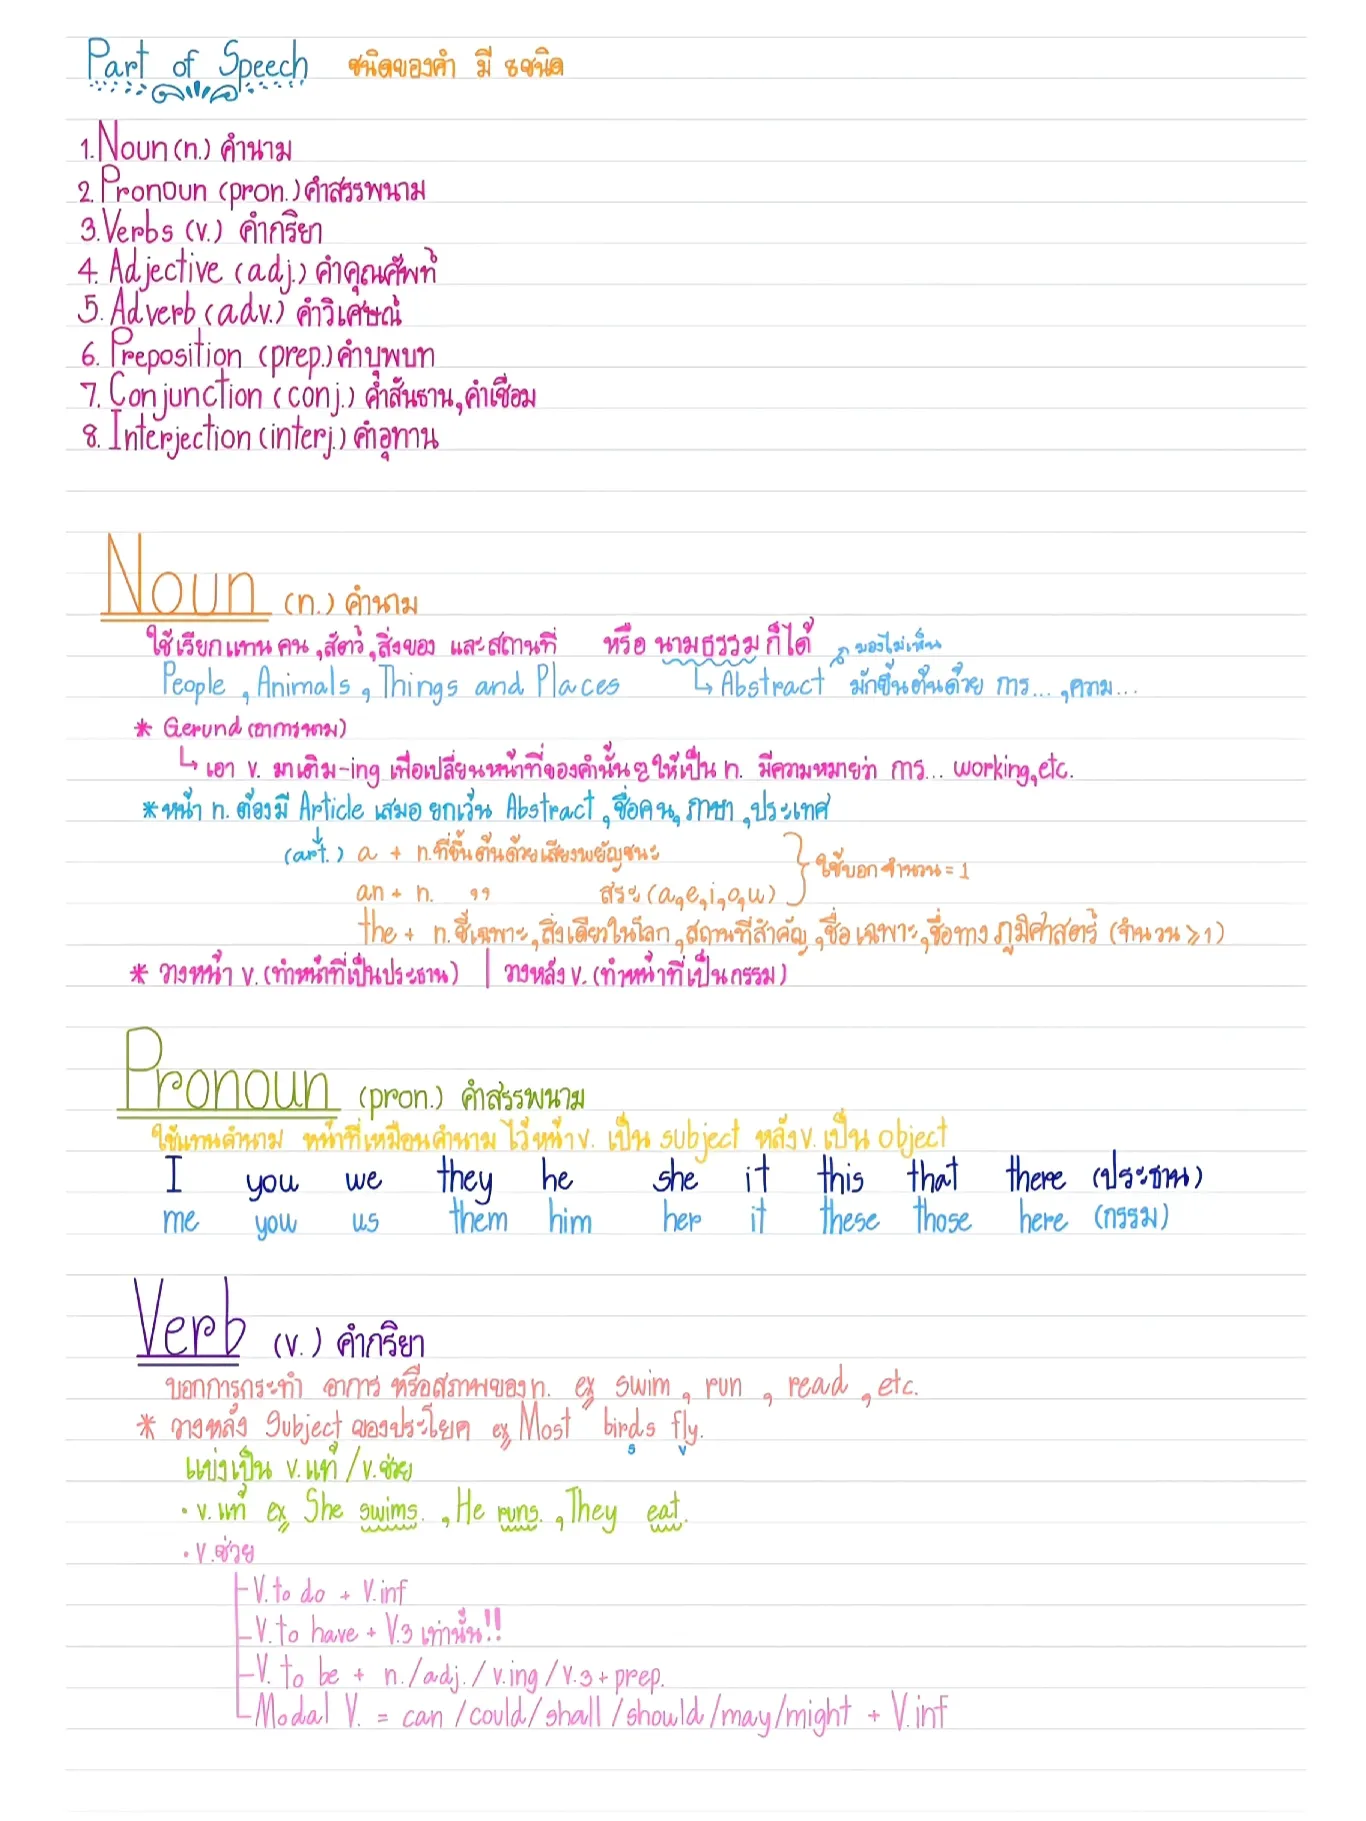 Part of Speech ชนิดของคำ มี 8 ชนิด
1. Noun (n.) คำนาม
2. Pronoun (pron.) คำสรรพนาม
3. Verbs (v.) คำกริยา
4. Adjective (adj.) คำคุณศัพท์
5. Adverb (adv.) คำวิเศษณ์
6. Preposition (prep.) คำบุพบท
7. Conjunction (conj.) คำสันธาน, คำเชื่อม
8. Interjection (interj.) คำอุทาน
Noun (n.) คำนาม
ใช้เรียกแทน คน, สัตว์, สิ่งของ และสถานที่ หรือ นามธรรม ก็ได้ มองไม่เห็น
People, Animals, Things and Places ↳ Abstract มักขึ้นต้นด้วย การ..., ความ...
* Gerund (อาการนาม)
↳ เอา v. มาเติม -ing เพื่อเปลี่ยนหน้าที่ของคำนั้นๆ ให้เป็น n. มีความหมายว่า การ... working, etc.
* หน้า n. ต้องมี Article เสมอ ยกเว้น Abstract, ชื่อคน, ภาษา, ประเทศ
(art.) a + n. ที่ขึ้นต้นด้วยเสียงพยัญชนะ } ใช้บอกจำนวน = 1
an + n. ,, สระ (a, e, i, o, u)
the + n. ชี้เฉพาะ, สิ่งเดียวในโลก, สถานที่สำคัญ, ชื่อเฉพาะ, ชื่อทางภูมิศาสตร์ (จำนวน ≥ 1)
* วางหน้า v. (ทำหน้าที่เป็นประธาน) | วางหลัง v. (ทำหน้าที่เป็นกรรม)
Pronoun (pron.) คำสรรพนาม
ใช้แทนคำนาม หน้าที่เหมือนคำนาม ไว้หน้า v. เป็น subject หลัง v. เป็น object
I you we they he she it this that there (ประธาน)
me you us them him her it these those here (กรรม)
Verb (v.) คำกริยา
บอกการกระทำ อาการ หรือสภาพของ n. ex swim, run, read, etc.
* วางหลัง Subject ของประโยค ex Most birds fly.
s v
แบ่งเป็น v.แท้ / v.ช่วย
• v.แท้ ex She swims., He runs., They eat.
• v.ช่วย
V. to do + V.inf
V. to have + V.3 เท่านั้น!!
V. to be + n. / adj. / v.ing / v.3 + prep.
Modal V. = can / could / shall / should / may / might + V.inf